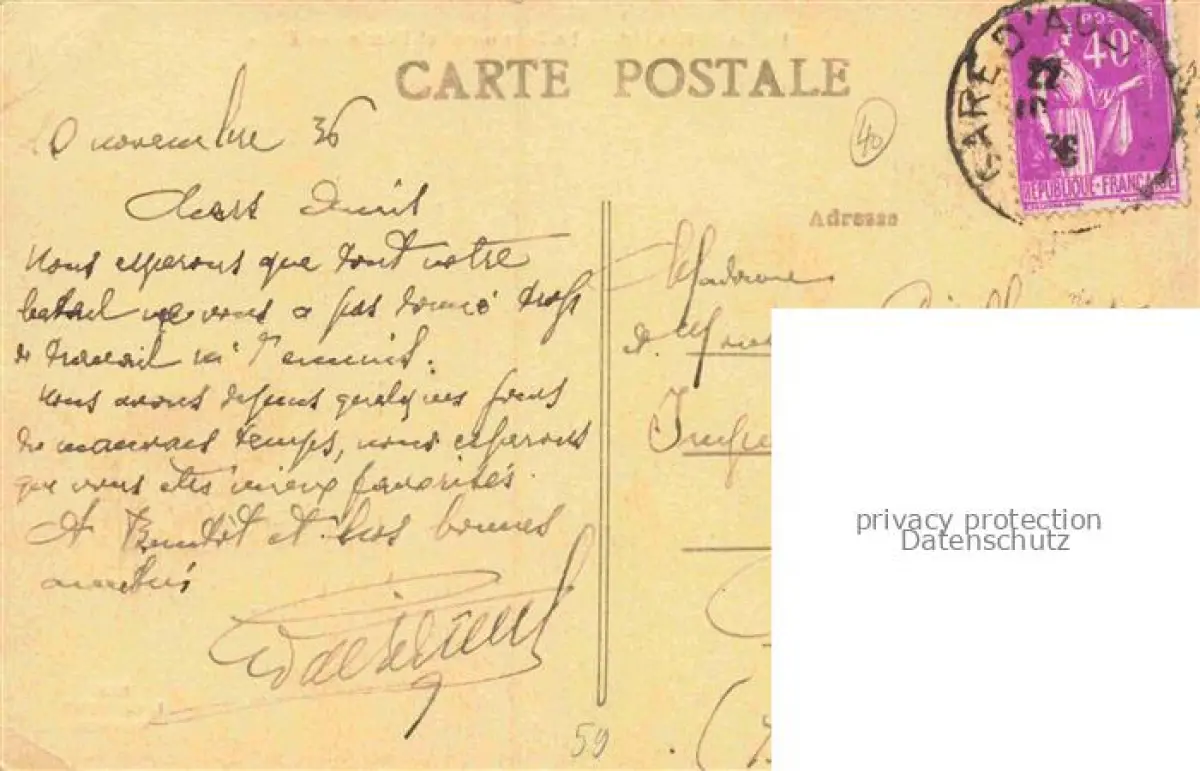 CARTE POSTALE
novembre 36
40
GARE D'AU
POS
40c
27
36
RÉPUBLIQUE-FRANÇAISE
Adresse
Chers
Nous esperons que tout votre
betail ne vous a pas donné trop
de travail ni d'ennuis.
Nous avons depuis quelques jours
de mauvais temps, nous esperons
que vous etes mieux favorisés.
A Bientôt et Nos bonnes
amitiés
Madame
59
privacy protection
Datenschutz